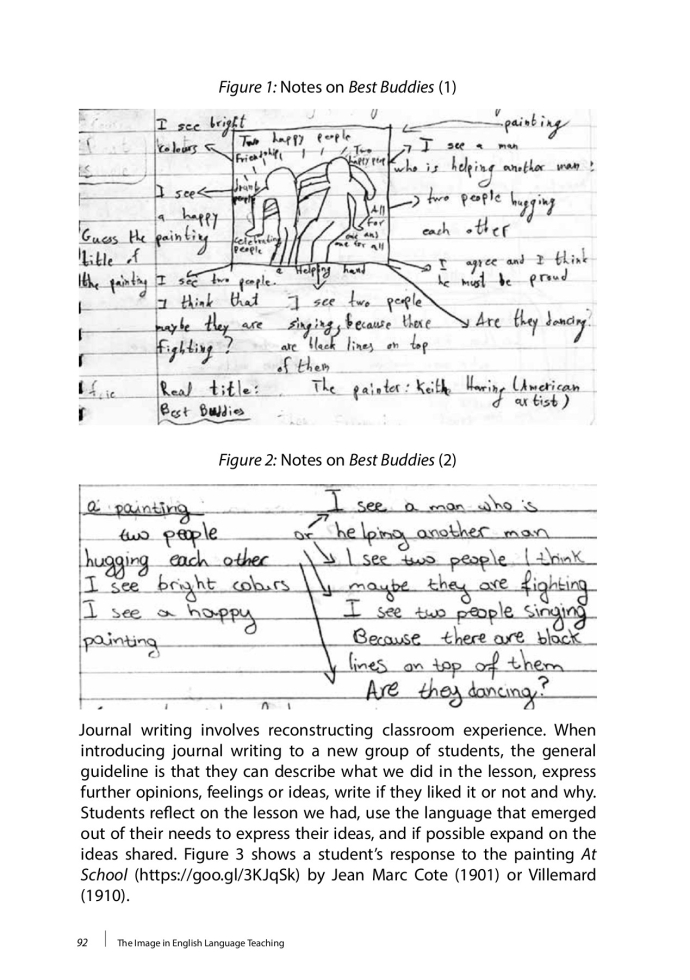 Figure 1: Notes on Best Buddies (1)
I see bright
colours
painting
Two happy people
Friendship
Two
happy people
I see a man
who is helping another man!
I see
a happy
painting
drunk
people
two people hugging
each other
All
for
one and
one for all
celebrating
people
Guess the
title of
the painting
a Helping hand
I agree and I think
he must be proud
I see two people.
I think that
maybe they are
fighting?
I see two people
singing, because there
are black lines on top
of them
Are they dancing?
Real title:
Best Buddies
The painter: Keith Haring (American
artist)
Figure 2: Notes on Best Buddies (2)
a painting
two people
hugging each other
I see bright colours
I see a happy
painting
I see a man who is
or helping another man
I see two people I think
maybe they are fighting
I see two people singing
Because there are black
lines on top of them
Are they dancing?
Journal writing involves reconstructing classroom experience. When
introducing journal writing to a new group of students, the general
guideline is that they can describe what we did in the lesson, express
further opinions, feelings or ideas, write if they liked it or not and why.
Students reflect on the lesson we had, use the language that emerged
out of their needs to express their ideas, and if possible expand on the
ideas shared. Figure 3 shows a student's response to the painting At
School (https://goo.gl/3KJqSk) by Jean Marc Cote (1901) or Villemard
(1910).
92 The Image in English Language Teaching